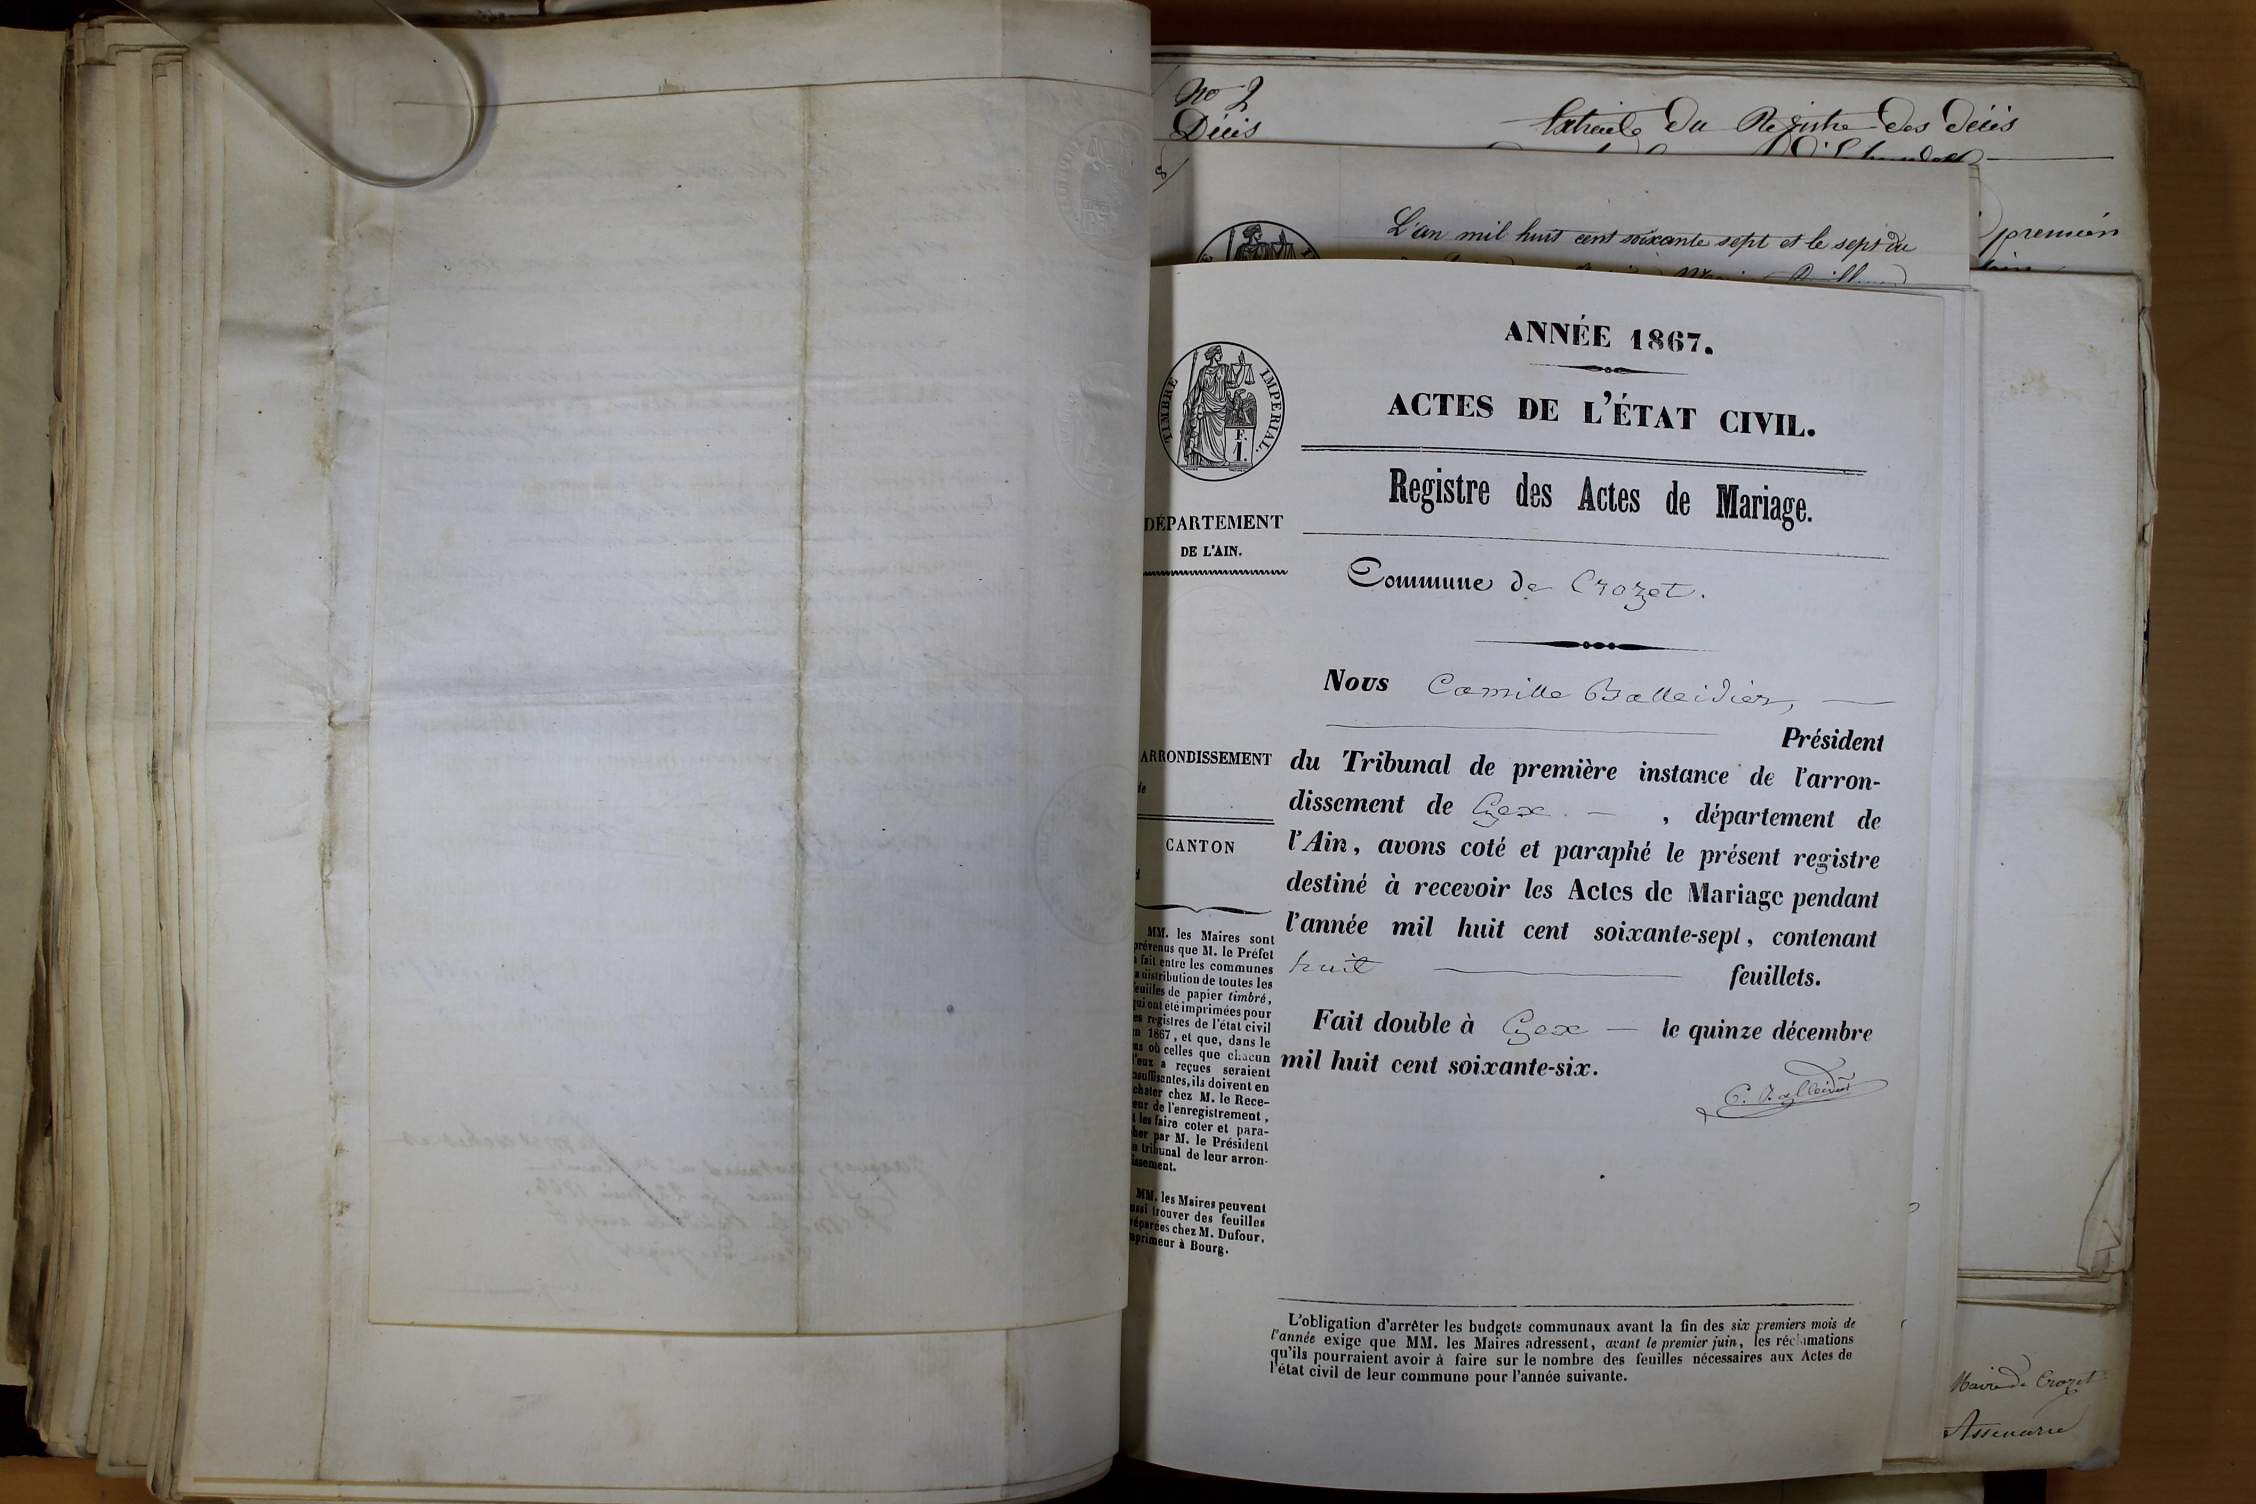 No 2
Décès
Extraits du Registre des décès
L'an mil huit cent soixante sept et le sept du
premier
ANNÉE 1867.
ACTES DE L'ÉTAT CIVIL.
TIMBRE IMPERIAL.
F.
1.
Registre des Actes de Mariage.
DÉPARTEMENT
DE L'AIN.
Commune de Crozet.
Nous Camille Balleidier,
Président
ARRONDISSEMENT
de
du Tribunal de première instance de l'arron-
dissement de Gex — , département de
CANTON
l'Ain, avons coté et paraphé le présent registre
destiné à recevoir les Actes de Mariage pendant
l'année mil huit cent soixante-sept, contenant
huit feuillets.
Fait double à Gex — le quinze décembre
mil huit cent soixante-six.
C. Balleidier
MM. les Maires sont
prévenus que M. le Préfet
a fait entre les communes
la distribution de toutes les
feuilles de papier timbré,
qui ont été imprimées pour
es registres de l'état civil
en 1867, et que, dans le
as où celles que chacun
d'eux a reçues seraient
nsuffisantes, ils doivent en
cheter chez M. le Rece-
eur de l'enregistrement,
t les faire coter et para-
her par M. le Président
u tribunal de leur arron-
issement.
MM. les Maires peuvent
ussi trouver des feuilles
réparées chez M. Dufour,
mprimeur à Bourg.
L'obligation d'arrêter les budgets communaux avant la fin des six premiers mois de
l'année exige que MM. les Maires adressent, avant le premier juin, les réclamations
qu'ils pourraient avoir à faire sur le nombre des feuilles nécessaires aux Actes de
l'état civil de leur commune pour l'année suivante.
Mairie de Crozet